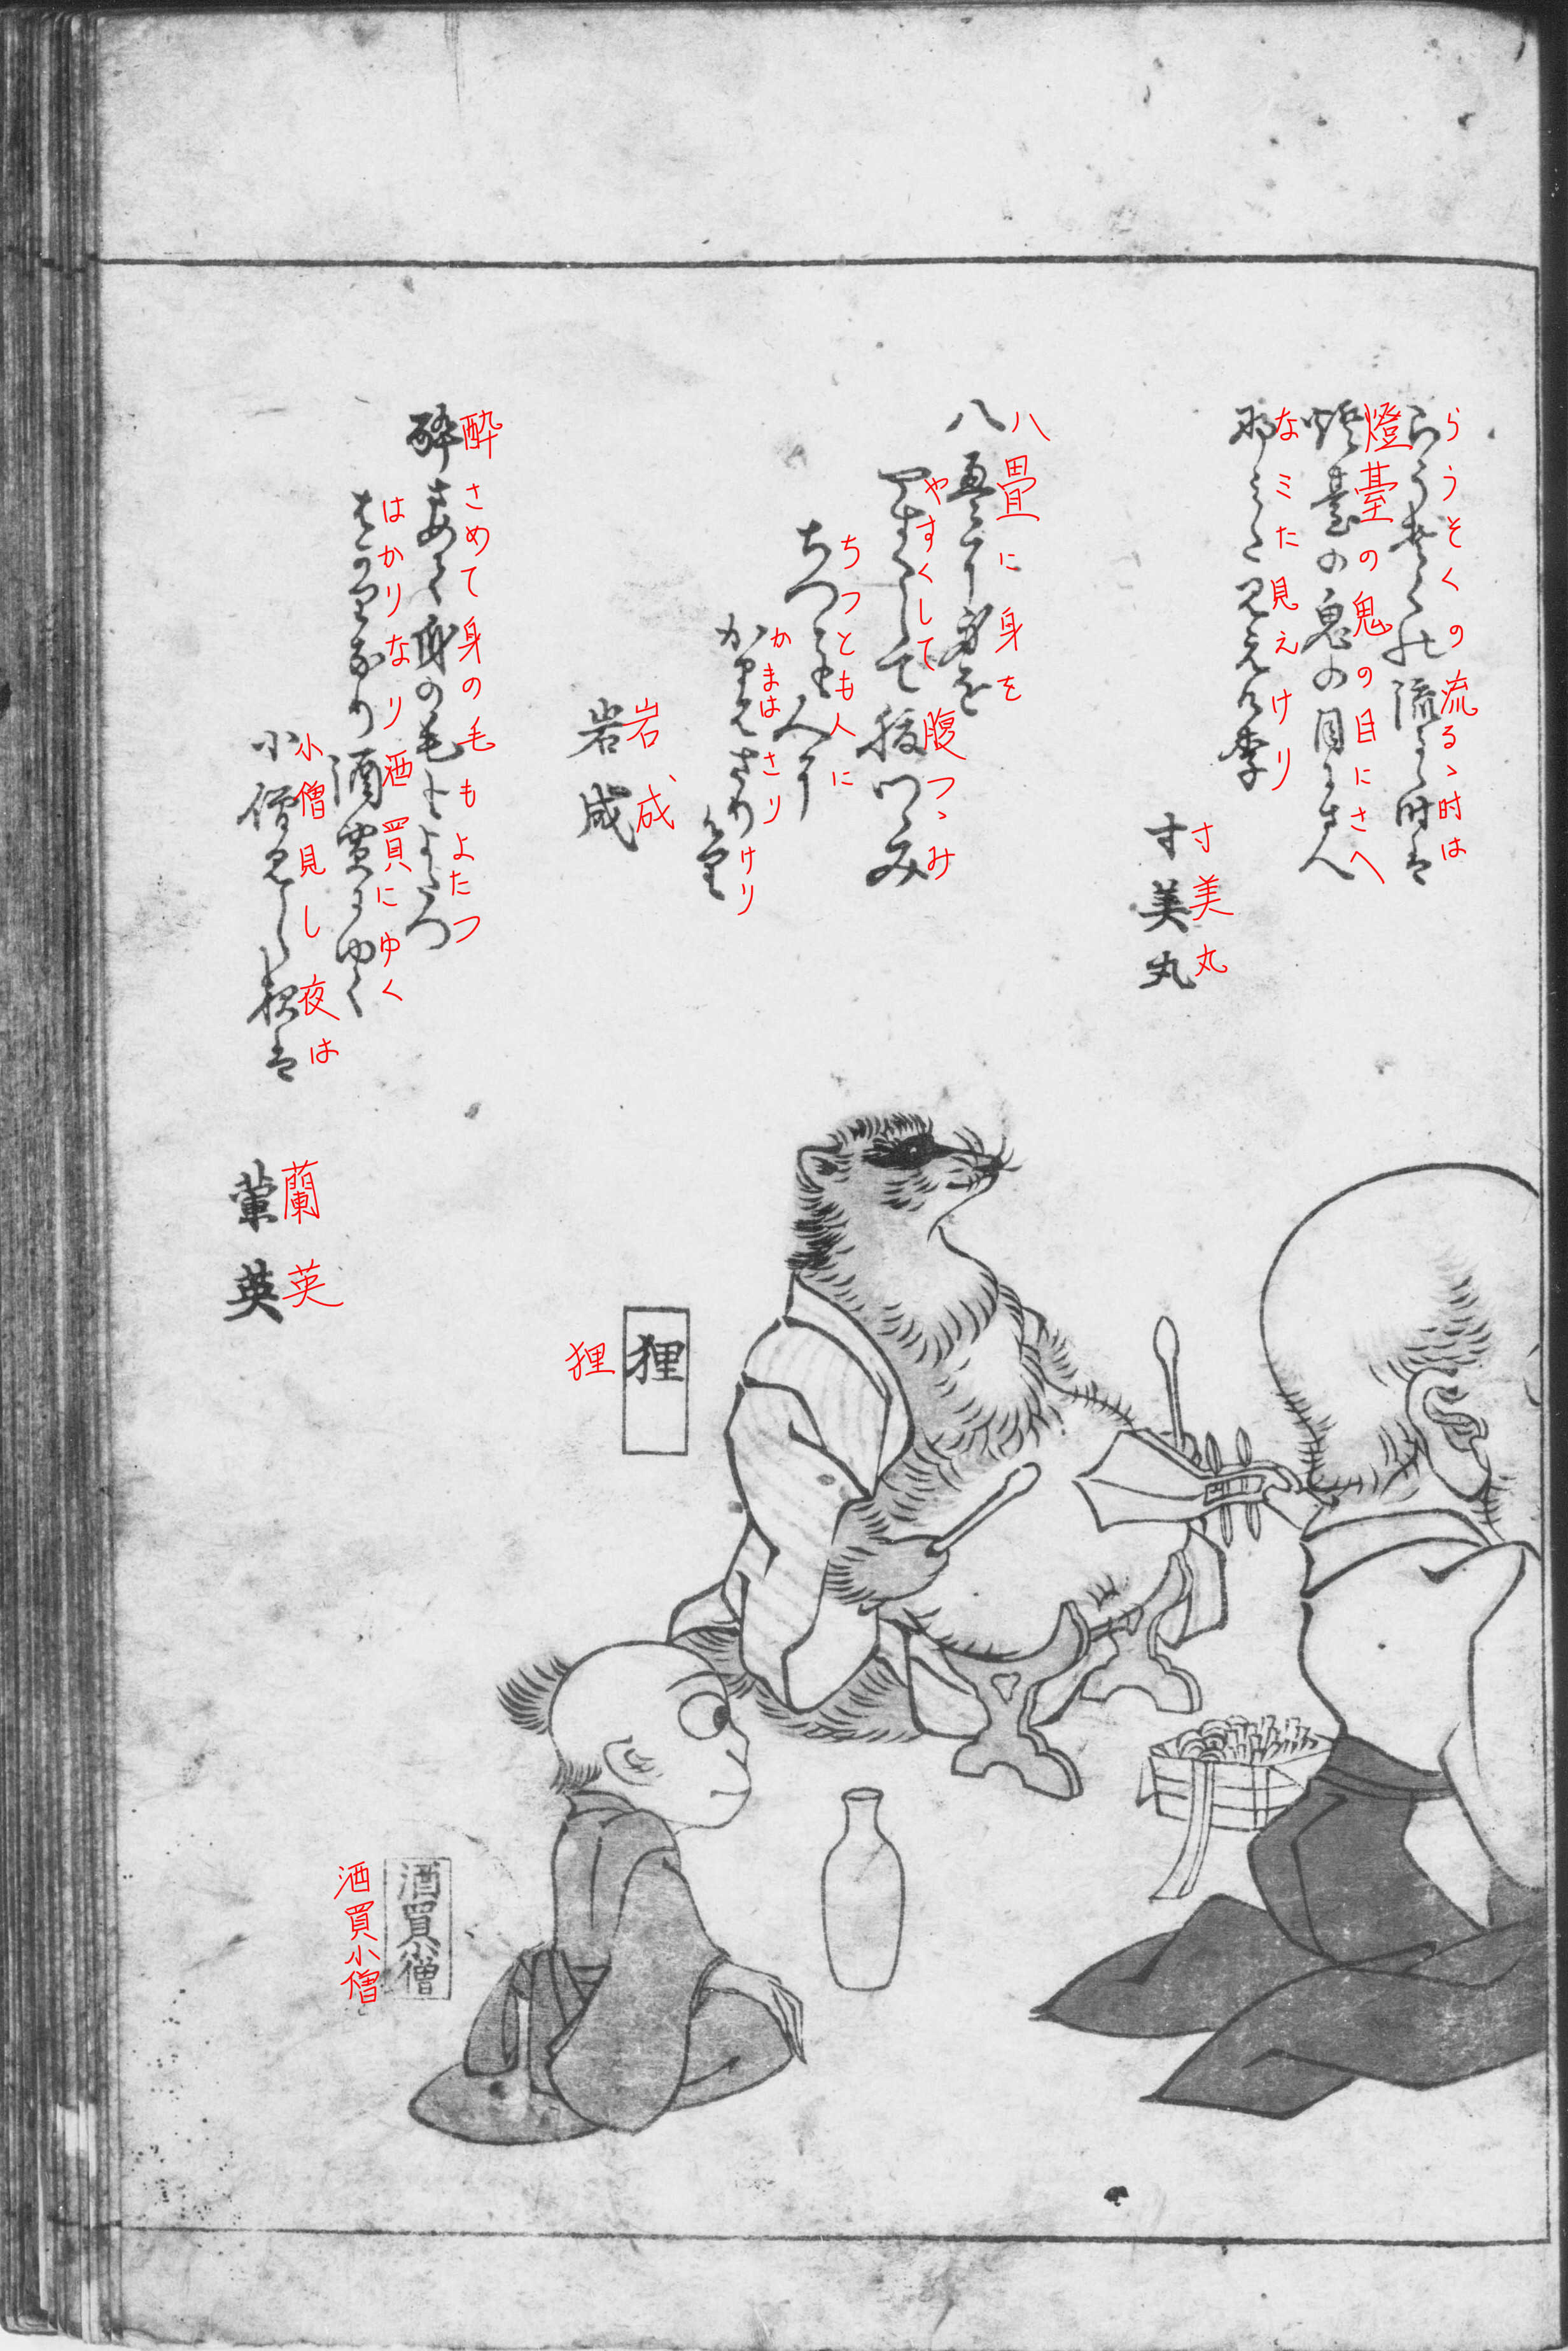 らうそくの流るゝ时は
燈䑓の鬼の目にさへ
なミた見えけり
寸美丸
八畳に身を
やすくして腹つゝみ
ちつとも人に
かまはさりけり
岩成
酔さめて身の毛もよたつ
はかりなり酒買にゆく
小僧見し夜は
蘭英
狸
酒買小僧